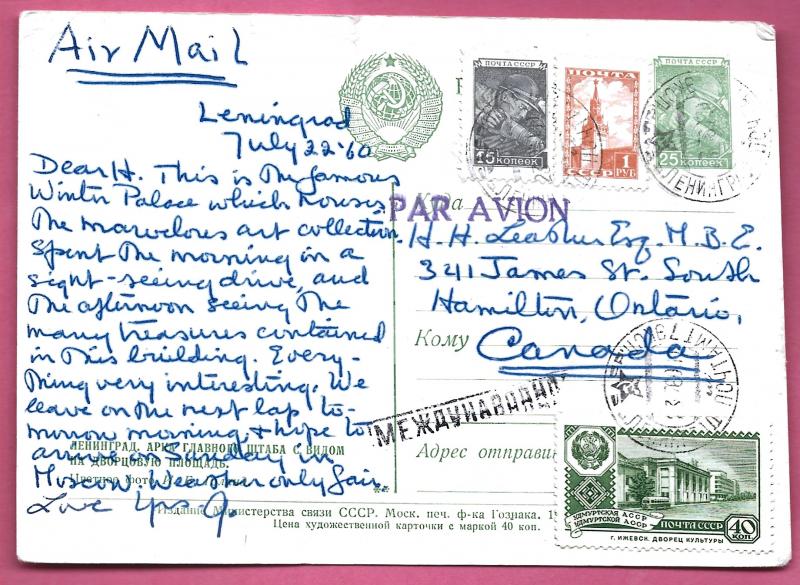 Air Mail
Leningrad
July 22 '60
Dear H. This is the famous
Winter Palace which houses
the marvelous art collection.
Spent the morning in a
sight-seeing drive, and
the afternoon seeing the
many treasures contained
in this building. Every-
thing very interesting. We
leave on the next lap to-
morrow morning, & hope to
arrive on Sunday in
Moscow. Weather only fair.
Love
ЛЕНИНГРАД. АРКА ГЛАВНОГО ШТАБА С ВИДОМ
НА ДВОРЦОВУЮ ПЛОЩАДЬ.
Цветное фото
Издание Министерства связи СССР. Моск. печ. ф-ка Гознака.
Цена художественной карточки с маркой 40 коп.
ПОЧТА СССР
15 КОПЕЕК
ПОЧТА
СССР
1 РУБ
ПОЧТА СССР
25 КОПЕЕК
ЛЕНИНГР
Куда
PAR AVION
H. H. Leather Esq. M.B.E.
341 James St. South
Hamilton, Ontario,
Кому
Canada
МЕЖДУНАРОДНОЕ
Адрес отправит
УДМУРТСКАЯ АССР
УДМУРТСКОЙ АССР
ПОЧТА СССР
40 КОП.
Г. ИЖЕВСК. ДВОРЕЦ КУЛЬТУРЫ